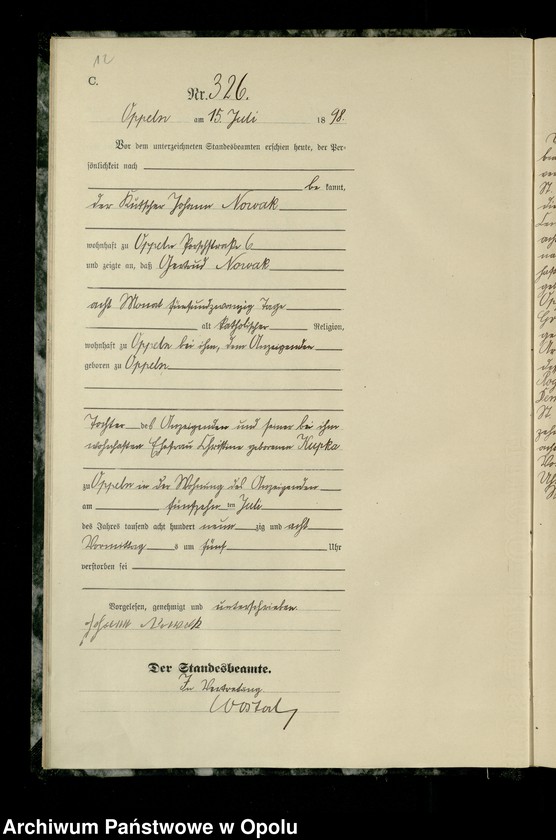 12
C.
Nr. 326.
Oppeln am 15. Juli 1898.
Vor dem unterzeichneten Standesbeamten erschien heute, der Per-
sönlichkeit nach
be kannt,
der Kutscher Johann Nowak
wohnhaft zu Oppeln 6
und zeigte an, daß Gertrud Nowak
acht Monat fünfundzwanzig Tage
alt katholischer Religion,
wohnhaft zu Oppeln bei ihm, dem Anzeigenden
geboren zu Oppeln
Tochter des Anzeigenden und seiner bei ihm
wohnhaften Ehefrau Christine geborenen Kupka
zu Oppeln in der Wohnung des Anzeigenden
am fünfzehn ten Juli
des Jahres tausend acht hundert neun zig und acht
Vormittag s um fünf Uhr
verstorben sei
Vorgelesen, genehmigt und unterschrieben
Johann Nowak
Der Standesbeamte.
In Vertretung
Wostal
Archiwum Państwowe w Opolu